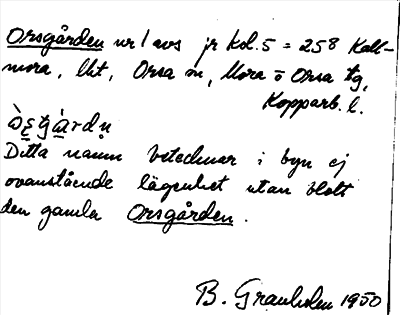 Orsgården nr 1 avs jr kd. 5 = 258 Kall-
mora, lht, Orsa sn, Mora o Orsa tg,
Kopparb. l.
Detta namn betecknar i byn ej
ovanstående lägenhet utan blott
den gamla Orsgården.
B. Granholm 1950